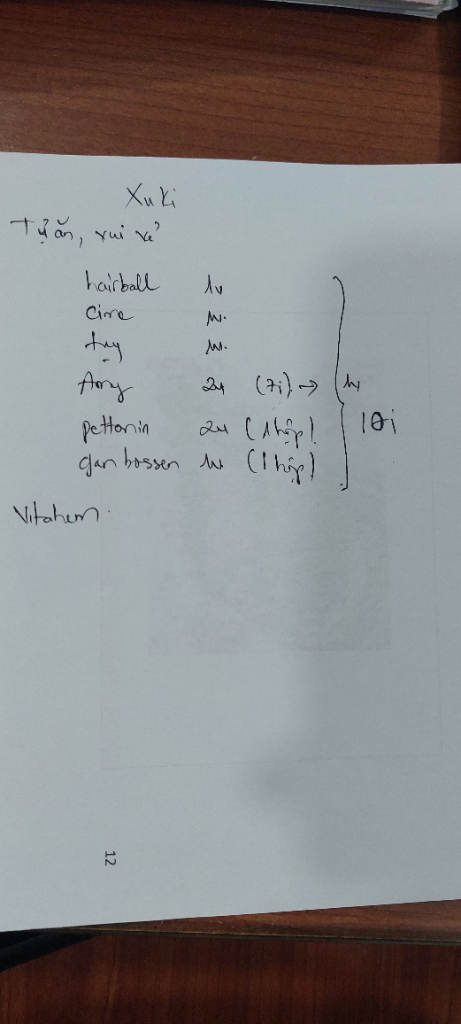 Xuki
Tự ăn, vui vẻ
hairball 1v
cime 1v.
tuy 1v.
Amy 2v (7i) → 1v
pettonin 2v (1 hộp)
gan bossen 1v (1 hộp)
10i
Vitahem.
12